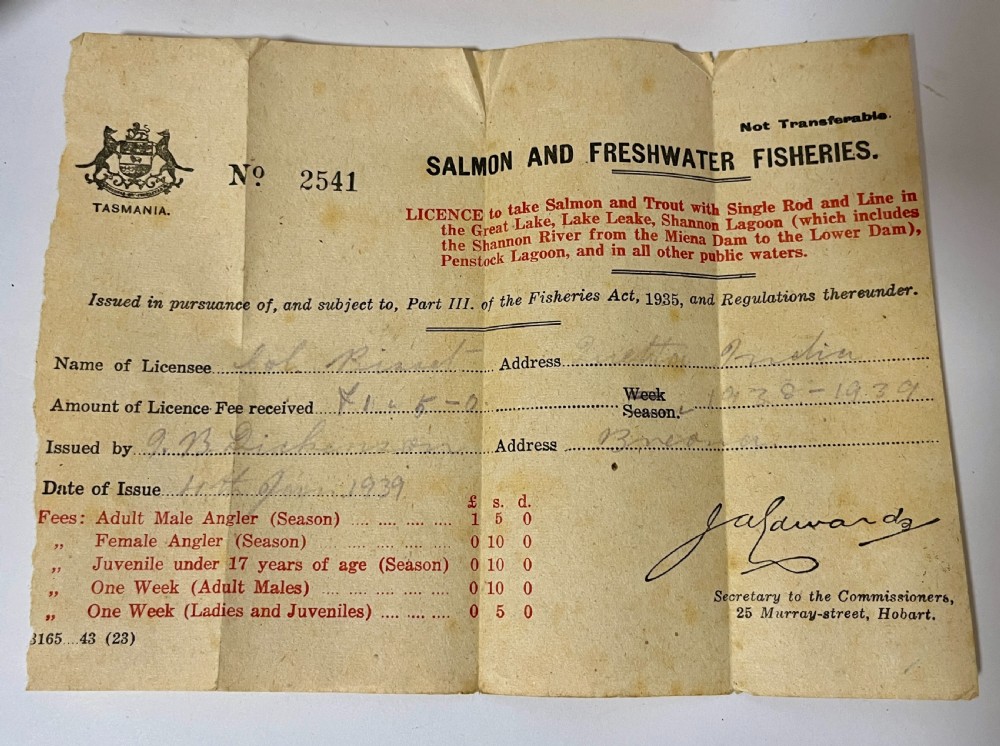 Not Transferable.
TASMANIA.
No 2541
SALMON AND FRESHWATER FISHERIES.
LICENCE to take Salmon and Trout with Single Rod and Line in
the Great Lake, Lake Leake, Shannon Lagoon (which includes
the Shannon River from the Miena Dam to the Lower Dam),
Penstock Lagoon, and in all other public waters.
Issued in pursuance of, and subject to, Part III. of the Fisheries Act, 1935, and Regulations thereunder.
Name of Licensee Col Address Quetta India
Amount of Licence Fee received £1-5-0 Week
Season. 1938-1939
Issued by Dickenson Address Breona
Date of Issue 11th Jan 1939
£ s. d.
Fees: Adult Male Angler (Season) .... .... .... .... 1 5 0
„ Female Angler (Season) .... .... .... .... 0 10 0
„ Juvenile under 17 years of age (Season) 0 10 0
„ One Week (Adult Males) .... .... .... .... 0 10 0
„ One Week (Ladies and Juveniles) .... .... .... 0 5 0
J A Edwards
Secretary to the Commissioners,
25 Murray-street, Hobart.
3165....43 (23)